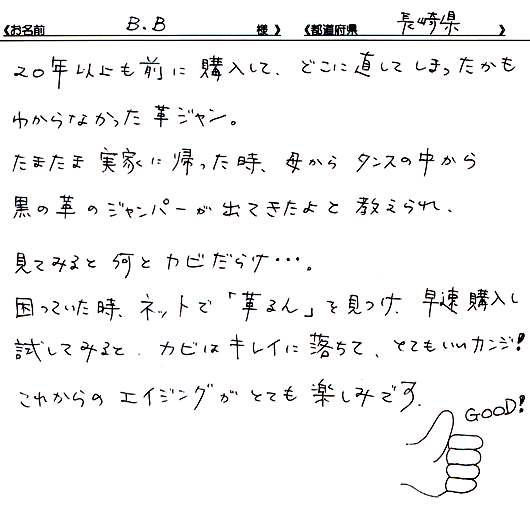 《お名前 B.B 様 》 《都道府県 長崎県 》
20年以上も前に購入して、どこに直してしまったかも
わからなかった革ジャン。
たまたま実家に帰った時、母からタンスの中から
黒の革のジャンパーが出てきたよと教えられ、
見てみると何とカビだらけ・・・。
困っていた時、ネットで「革るん」を見つけ、早速購入し
試してみると、カビはキレイに落ちて、とてもいいカンジ!
これからのエイジングがとても楽しみです。
GOOD!